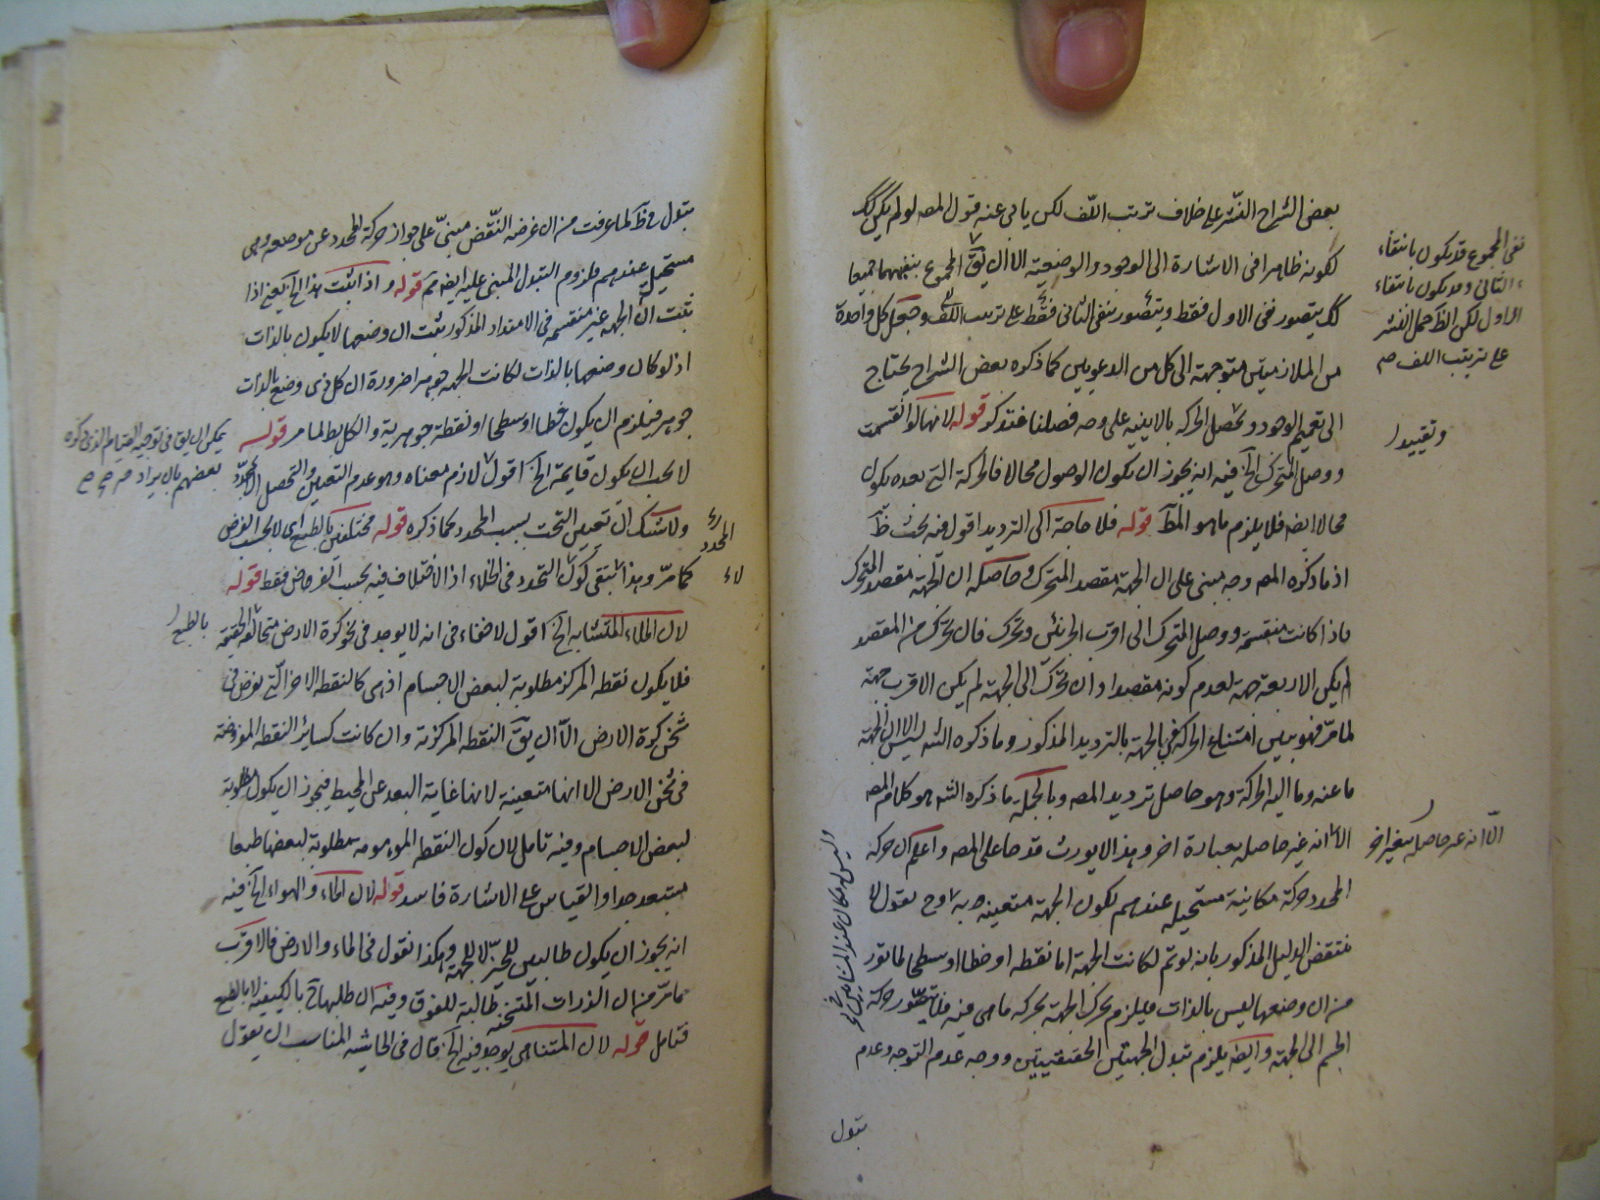 بعض الشراح النشر على خلاف ترتيب اللف لكن يابى عنه قول المص لو لم يكن كك
لكونه ظاهرا فى الاشارة الى الوجود والوضعية الا ان يق المجموع بنفيهما جميعا
كك يتصور نفى الاول فقط ويتصور بنفى الثانى فقط على ترتيب اللف وجعل كل واحدة
من الملازمتين متوجهة الى كل من الدعويين كما ذكره بعض الشراح يحتاج
الى تعميم الوجود وتحصل الحركة بالاينية على وجه فصلنا فتذكر قوله لانها لو انقسمت
ووصل المتحرك الخ فيه انه يجوز ان يكون الوصول محالا فالحركة التى بعده يكون
محالا ايضه فلا يلزم ما هو المط قوله فلا حاجة الى الترديد اقول فيه بحث ظ
اذ ما ذكره المص وجه مبنى على ان الجهة مقصد المتحرك وحاصله ان الجهة مقصد المتحرك
فاذا كانت منقسمة ووصل المتحرك الى اقرب الجزئين وتحرك فان تحرك من المقصد
لم يكن الابعد جهة لعدم كونه مقصدا وان تحرك الى الجهة لم يكن الاقرب جهة
لما مر فهو يبين امتناع الحركة فى الجهة بالترديد المذكور وما ذكره الشه ليس الا ان الجهة
ما عنه وما اليه الحركة وهو حاصل ترديد المص وبالجملة ما ذكره الشه هو كلام المص
الا انه غير حاصله بعبارة اخر وهذا لا يورث قدحا على المص واعلم ان حركة
المحدد حركة مكانية مستحيلة عندهم لكون الجهة متعينة به وح يقول لا
ينتقض الدليل المذكور بانه لو تم لكانت الجهة اما نقطة او خطا او سطحا لما تقرر
من ان وضعها ليس بالذات فيلزم تحرك الجهة بحركة ما هى فيه فلا يتصور حركة
الجسم الى الجهة وايضه يلزم تبدل الجهتين الحقيقيتين ووجه عدم التوجه وعدم
نفى المجموع قد يكون بانتفاء
الثانى وقد يكون بانتفاء
الاول لكن الظ حمل النشر
على ترتيب اللف صم
وتقييد
الا انه غير حاصله بتغيير اخر
وليس له مكان عند المشائين
بتبدل
بتبدل ح ظ لما عرفت من ان غرضه النقض مبنى على جواز حركة المحدد عن موضعه وهى
مستحيل عندهم فلزوم التبدل المبنى عليه ايضه مم قوله واذا ثبت هذا الخ يعنى اذا
ثبت ان الجهة غير منقسمة فى الامتداد المذكور ثبت ان وضعها لا يكون بالذات
اذ لو كان وضعها بالذات لكانت الجهة جوهرا ضرورة ان كل ذى وضع بالذات
جوهر فيلزم ان يكون خطا او سطحا او نقطة جوهرية والكل بط لما مر قوله
لا يجب ان يكون قايمة الخ اقول لازم معناه وهو عدم التعين والتحصل الا بمحدد
ولا شك ان تعين التحت بسبب المحدد كما ذكره قوله مختلفين بالطبع اى لا بحسب الفرض
كما مر وهذا ينفى كون التحدد فى الخلاء اذ الاختلاف فيه بحسب الفروض فقط قوله
لان الملاء المتشابه الخ اقول لا خفاء فى انه لا يوجد فى نحو كرة الارض متخالفة الحقيقة
فلا يكون نقطة المركز مطلوبة لبعض الاجسام اذ هى كالنقطة الاخر التى يفرض فى
ثخن كرة الارض الا ان يق النقطة المركزية وان كانت كسائر النقطة المفروضة
فى ثخن الارض الا انها متعينة لانها غاية البعد عن المحيط فيجوز ان يكون مطلوبة
لبعض الاجسام وفيه تامل لان كون النقطة الموهومة مطلوبة لبعضها طبعا
مستبعد جدا والقياس على الاشارة فاسد قوله لان الماء والهواء الخ فيه
انه يجوز ان يكون طالبين للحيز لا للجهة وهكذا نقول فى الماء والارض فالاقرب
ما مر من ان الذرات المتسخنة طالبة للفوق وفيه ان طلبها ح بالكيفية لا بالطبع
فتامل قوله لان المتناهى يوجد فيه الخ قال فى الحاشية المناسب ان يقول
يمكن ان يق فى توجيه القياس الذى ذكره
بعضهم بالايراد
المحدد
لاء
بالطبع